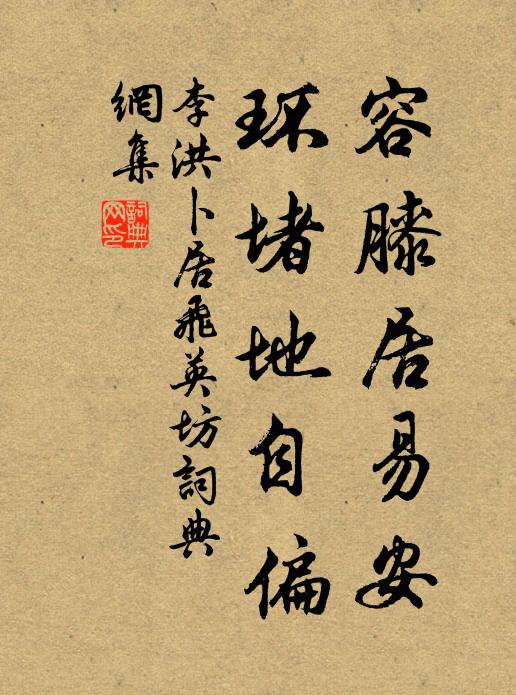 容膝居易安
环堵地自偏
李洪卜居飛英坊詞典
網集
詞典
网印